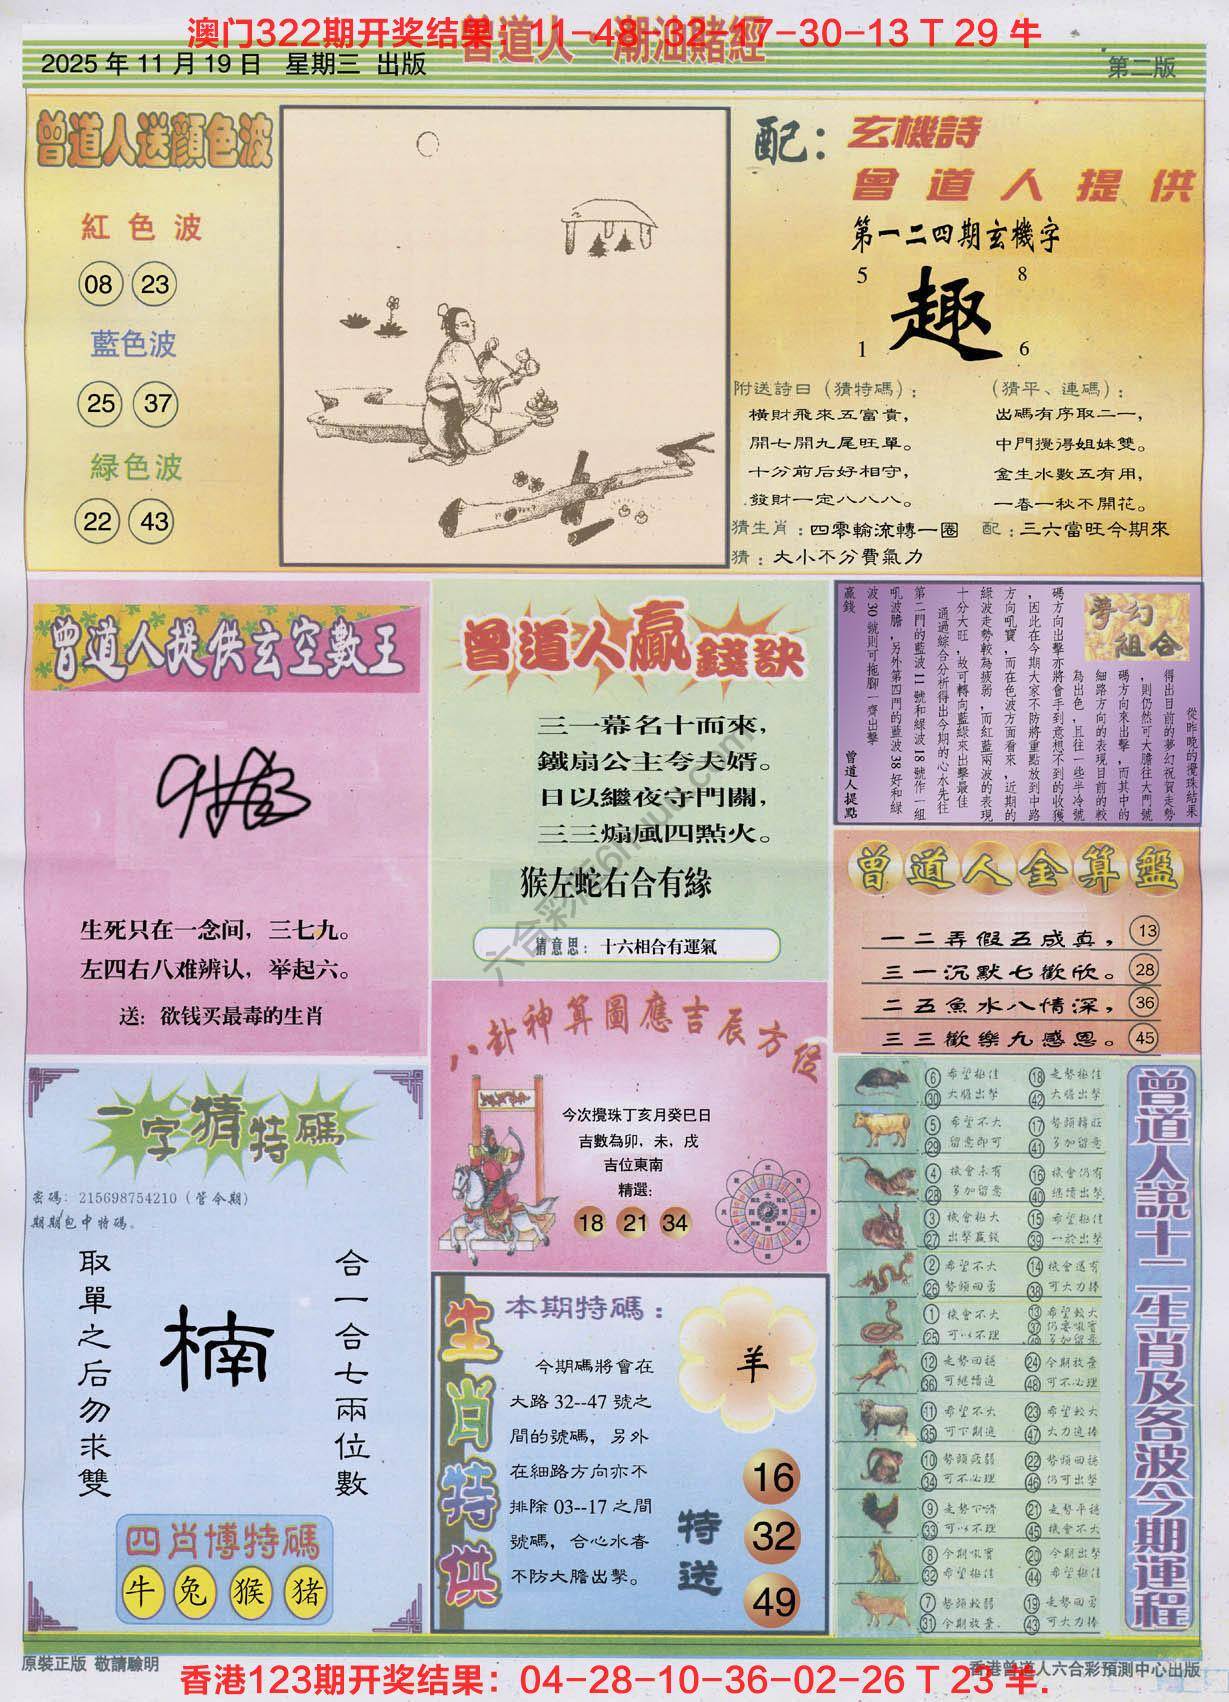 澳门322期开奖结果：11-48-32-17-30-13 T 29 牛
曾道人·潮汕賭經
2025 年 11 月 19 日 星期三 出版
第二版
曾道人送顏色波
紅色波
08 23
藍色波
25 37
緑色波
22 43
配：玄機詩
曾道人提供
第一二四期玄機字
5 8
趣
1 6
附送詩曰（猜特碼）：
橫財飛來五富貴，
開七開九尾旺單。
十分前后好相守，
發財一定八八八。
（猜平、連碼）：
出碼有序取二一，
中門攪得姐妹雙。
金生水數五有用，
一春一秋不開花。
猜生肖：四零輪流轉一圈
配：三六當旺今期來
猜：大小不分費氣力
曾道人提供玄空數王
生死只在一念间，三七九。
左四右八难辨认，举起六。
送：欲钱买最毒的生肖
曾道人贏錢訣
三一幕名十而來，
鐵扇公主夸夫婿。
日以繼夜守門關，
三三煽風四點火。
猴左蛇右合有緣
猜意思：十六相合有運氣
夢幻組合
從昨晚的攪珠結果
得出目前的夢幻祝賀走勢
，則仍然可大膽往大門號
碼方向來出擊，而其中的
細路方向的表現目前的較
為出色，且往一些半冷號
碼方向出擊亦將會手到意想不到的收獲
，因此在今期大家不防將重點放到中路
方向吼寶，而在色波方面看來，近期的
綠波走勢較為疲弱，而紅藍兩波的表現
十分大旺，故可轉向藍綠來出擊最佳
通過綜合分析得出今期的心水先往
第二門的藍波 11 號和綠波 18 號作一組
吼波膽，另外第四門的藍波 38 好和綠
波 30 號則可拖腳一齊出擊
贏錢
曾道人提點
曾道人金算盤
一二弄假五成真，13
三一沉默七歡欣。28
二五魚水八情深，36
三三歡樂九感恩。45
八卦神算圖應吉辰方位
今次攪珠丁亥月癸巳日
吉數為卯，未，戌
吉位東南
精選：
18 21 34
一字猜特碼
密碼：215698754210（管今期）
期期包中特碼。
合一合七兩位數
楠
取單之后勿求雙
四肖博特碼
牛 兔 猴 猪
生肖特供
本期特碼：
羊
今期碼將會在
大路 32--47 號之
間的號碼，另外
在細路方向亦不
排除 03--17 之間
號碼，合心水者
不防大膽出擊。
特送
16
32
49
曾道人説十二生肖及各波今期運程
6 希望極佳 18 走勢極佳
30 大膽出擊 42 大膽出擊
5 希望不大 17 勢頭轉旺
29 留意即可 41 多加留意
4 機會未有 16 機會仍有
28 多加留意 40 繼續出擊
3 機會極大 15 希望極佳
27 出擊贏錢 39 一於出擊
2 希望不大 14 機會還有
26 勢頭回勇 38 可大力捧
1 機會不大 13 希望較大
37 仍要吼實
25 可以不理 49 多加留意
12 走勢回穩 24 今期放棄
36 可繼續追 48 可不必理
11 希望不大 23 希望較大
35 可下期追 47 大力追捧
10 勢頭疲弱 22 勢頭回穩
34 可不必理 46 仍可出擊
9 走勢下滑 21 走勢平穩
33 可以不理 45 機會不大
8 今期吼實 20 今期出擊
32 希望極佳 44 希望極佳
7 勢頭較弱 19 走勢回勇
31 今期放棄 43 可大力捧
原裝正版 敬請驗明
香港曾道人六合彩預測中心出版
香港123期开奖结果：04-28-10-36-02-26 T 23 羊.